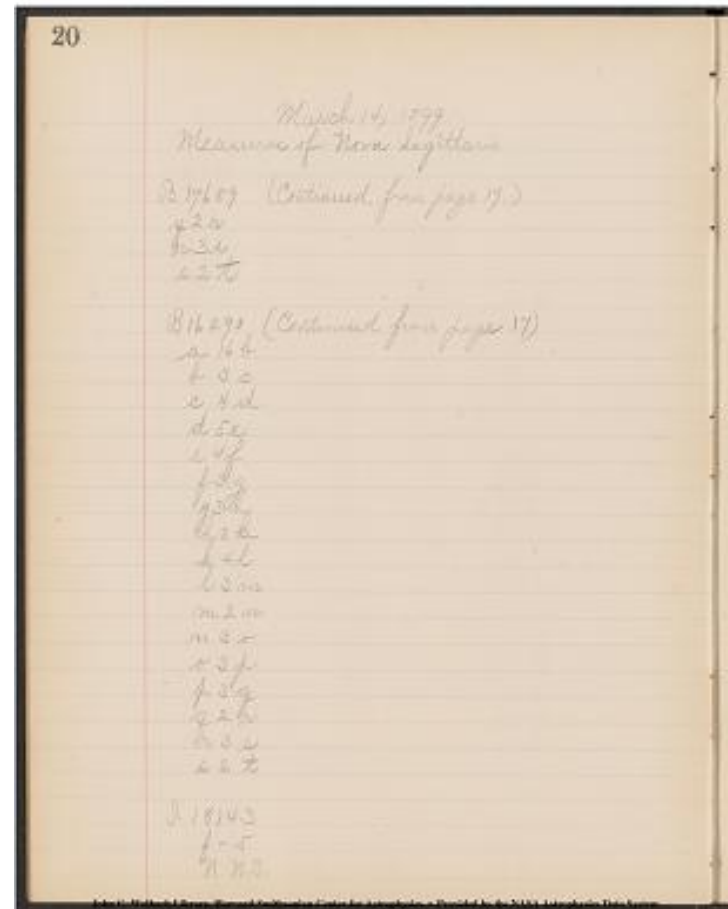 20
March 14, 1899
Measures of Nova Sagittarii
B 17609 (Continued from page 17.)
q 2 r
r 3 s
s 2 t
B 16290 (Continued from page 17)
a 16 b
b 3 c
c 4 d
d 5 e
e 4 f
f 4 g
g 3 h
h 3 k
k 4 l
l 3 m
m 2 n
n 3 o
o 3 p
p 3 q
q 2 r
r 3 s
s 2 t
18143